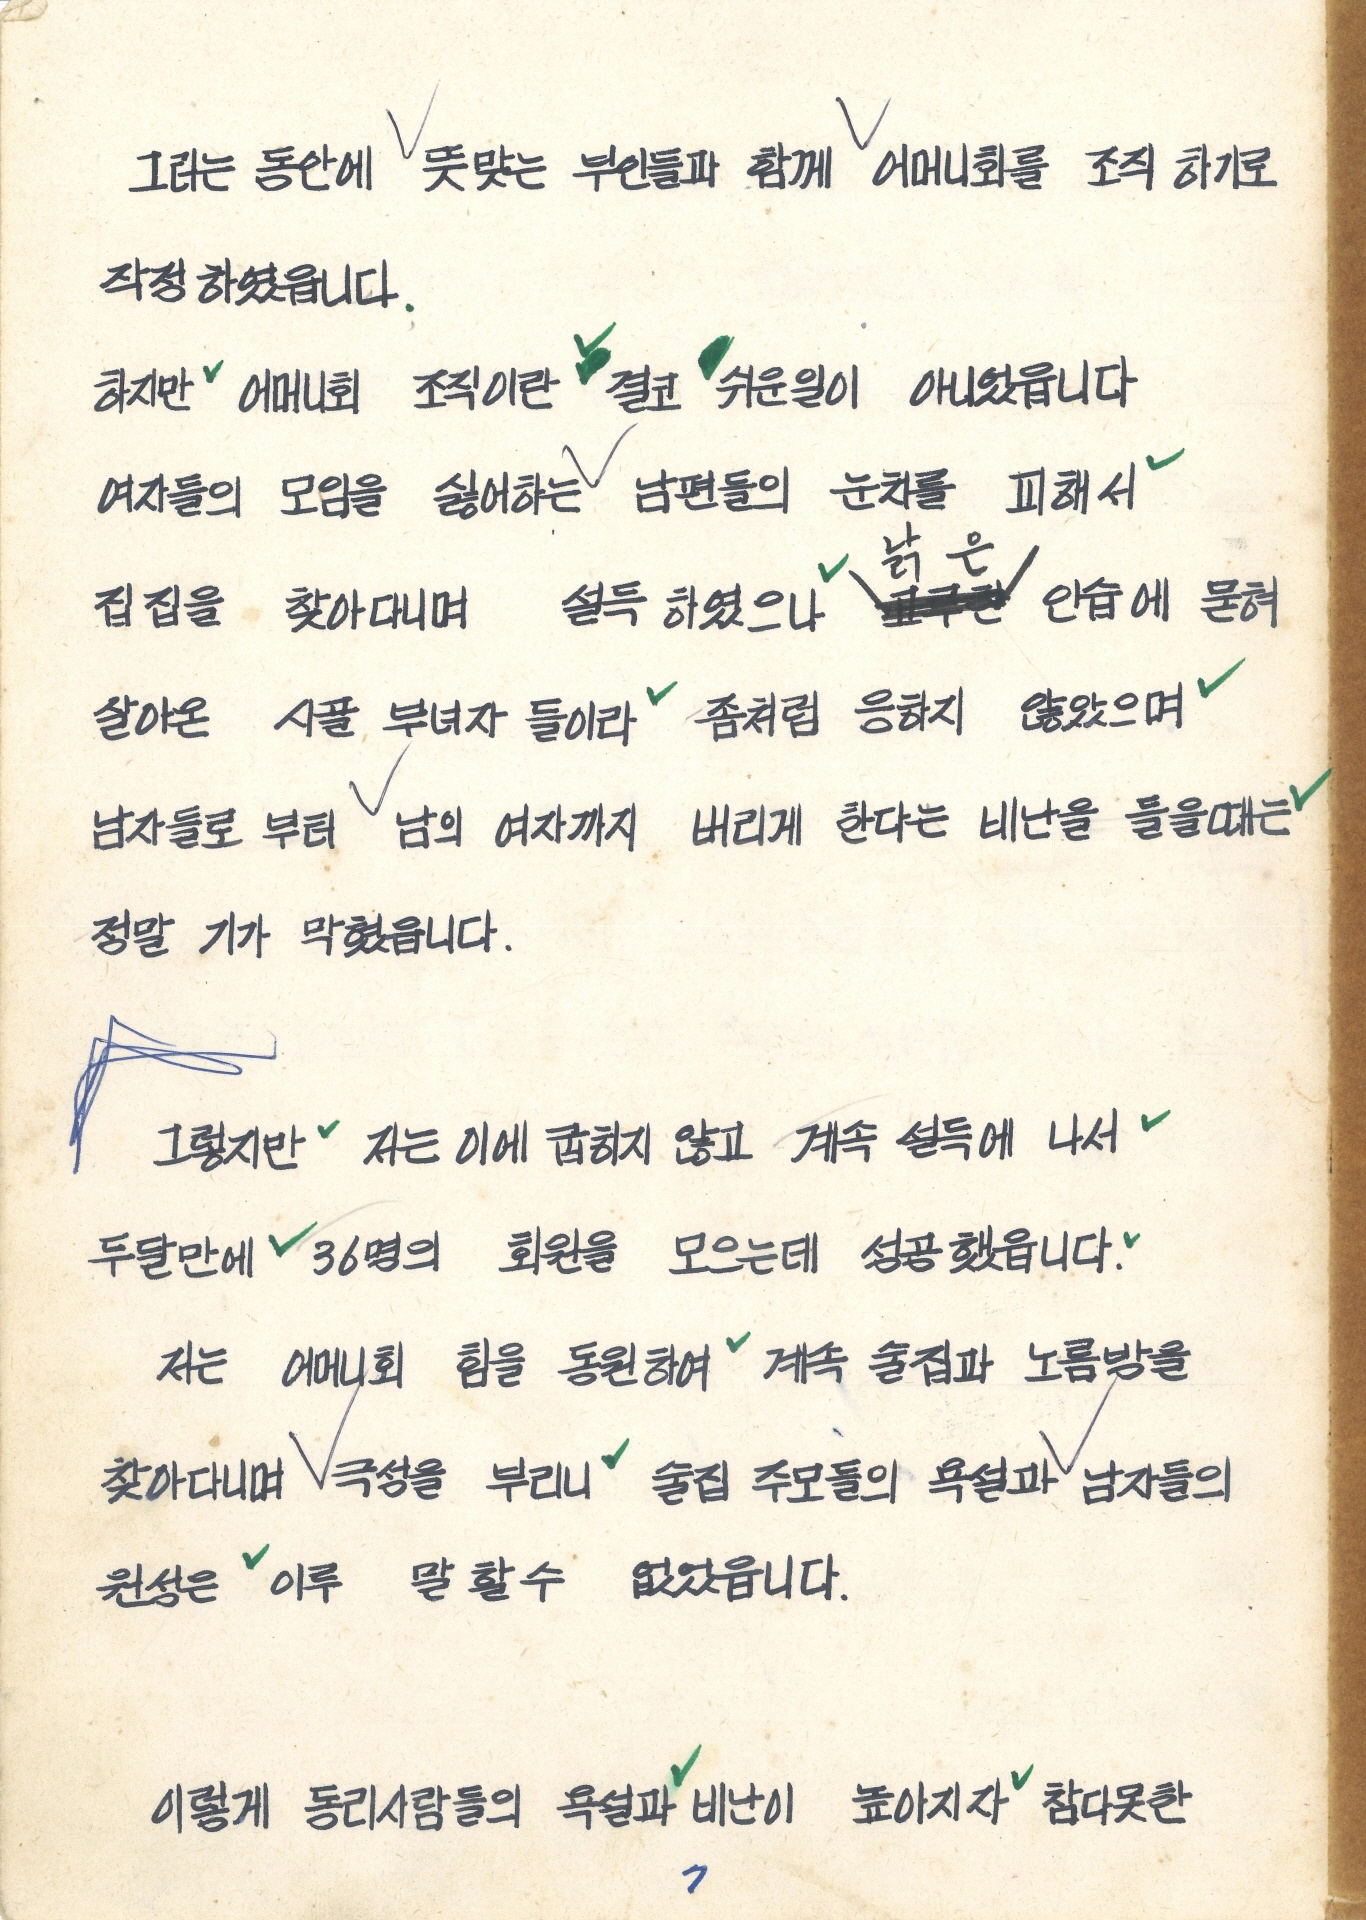 그러는 동안에 뜻맞는 부인들과 함께 어머니회를 조직 하기로
작정 하였읍니다.
하지만 어머니회 조직이란 결코 쉬운일이 아니었읍니다
여자들의 모임을 싫어하는 남편들의 눈치를 피해서
낡은
집집을 찾아다니며 설득 하였으나 인습에 묻혀
살아온 시골 부녀자 들이라 좀처럼 응하지 않았으며
남자들로 부터 남의 여자까지 버리게 한다는 비난을 들을때는
정말 기가 막혔읍니다.
그렇지만 저는 이에 굽히지 않고 계속 설득에 나서
두달만에 36명의 회원을 모으는데 성공했읍니다.
저는 어머니회 힘을 동원하여 계속 술집과 노름방을
찾아다니며 극성을 부리니 술집 주모들의 욕설과 남자들의
원성은 이루 말 할수 없었읍니다.
이렇게 동리사람들의 욕설과 비난이 높아지자 참다못한
7